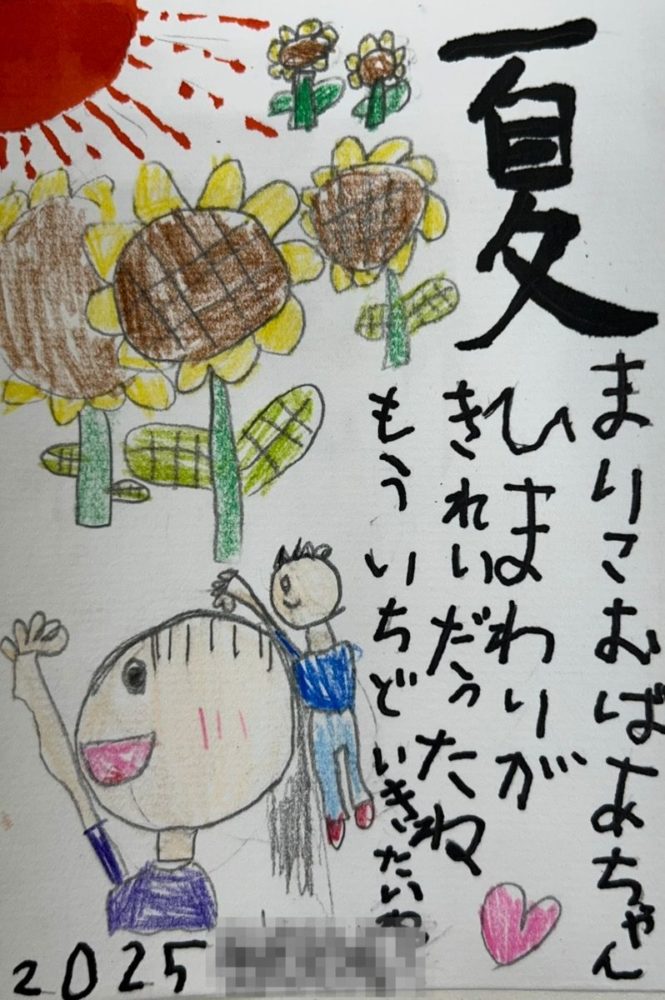 夏
まりこおばあちゃん
ひまわりが
きれいだったね
もういちどいきたいね
2025